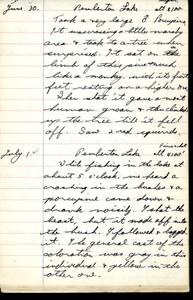 June 30. Pemberton Lake alt 5100'
Took a very large E. Porcupine
It was crossing a little marshy
area & took to a tree when
surprised. It sat on the
limb of this pine much
like a monkey with its feet
resting on a higher one.
When shot it gave a most
human groan & then climbed
up the tree till it fell
off. Saw 2 red squirrels.
July 1st Pemberton Lake
Alt 5100'
While fishing in the lake at
about 5 o'clock, we heard a
crashing in the bushes & a
porcupine came down &
drank noisily. I shot the
beast, but it made off into
the bush. I followed & bagged
it. The general cast of the
coloration was gray in this
individual & yellow in the
other one.